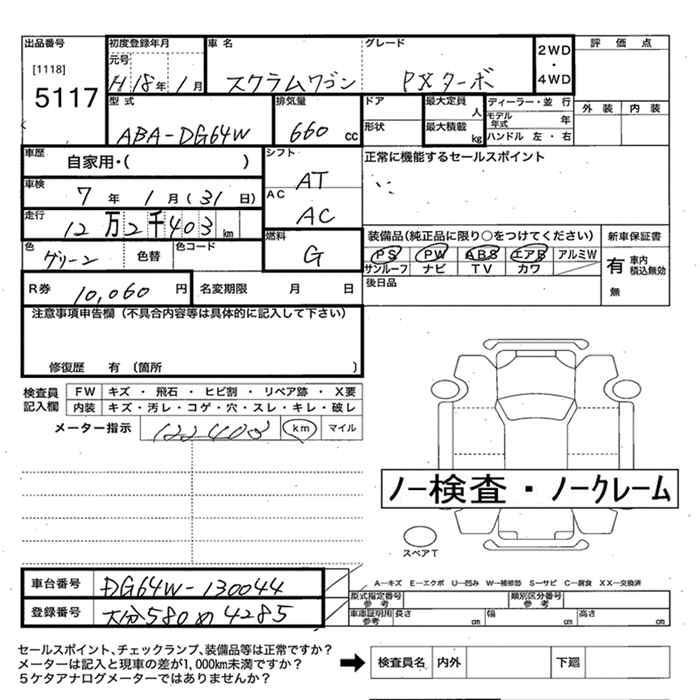 出品番号
[1118]
5117
初度登録年月 車名 グレード
元号
H 18年 1月 スクラムワゴン PXターボ
2WD・4WD
評価点
外装 内装
型式 ABA-DG64W
排気量 660 cc
ドア
形状
最大定員 人
最大積載 kg
ディーラー・並行
モデル年式 年
ハンドル 左・右
車歴 自家用・( )
シフト AT
正常に機能するセールスポイント
車検 7年 1月(31日)
AC AC
走行 12万2千403 km
色 グリーン 色替 色コード
燃料 G
装備品(純正品に限り○をつけてください)
PS PW ABS エアB アルミW
サンルーフ ナビ TV カワ
新車保証書
有 車内積込無効
無
R券 10,060円
名変期限 月 日
後日品
注意事項申告欄(不具合内容等は具体的に記入して下さい)
修復歴 有 (箇所 )
検査員記入欄
FW キズ・飛石・ヒビ割・リペア跡・X要
内装 キズ・汚レ・コゲ・穴・スレ・キレ・破レ
メーター指示 122403 km マイル
ノー検査・ノークレーム
スペアT
車台番号 DG64W-130044
登録番号 大分580め4285
A―キズ E―エクボ U―凹み W―補修跡 S―サビ C―腐食 XX―交換済
型式指定番号 参考
類別区分番号 参考
車庫証明用 参考 長さ cm 幅 cm 高さ cm
セールスポイント、チェックランプ、装備品等は正常ですか?
メーターは記入と現車の差が1,000km未満ですか?
5ケタアナログメーターではありませんか?
検査員名 内外 下廻